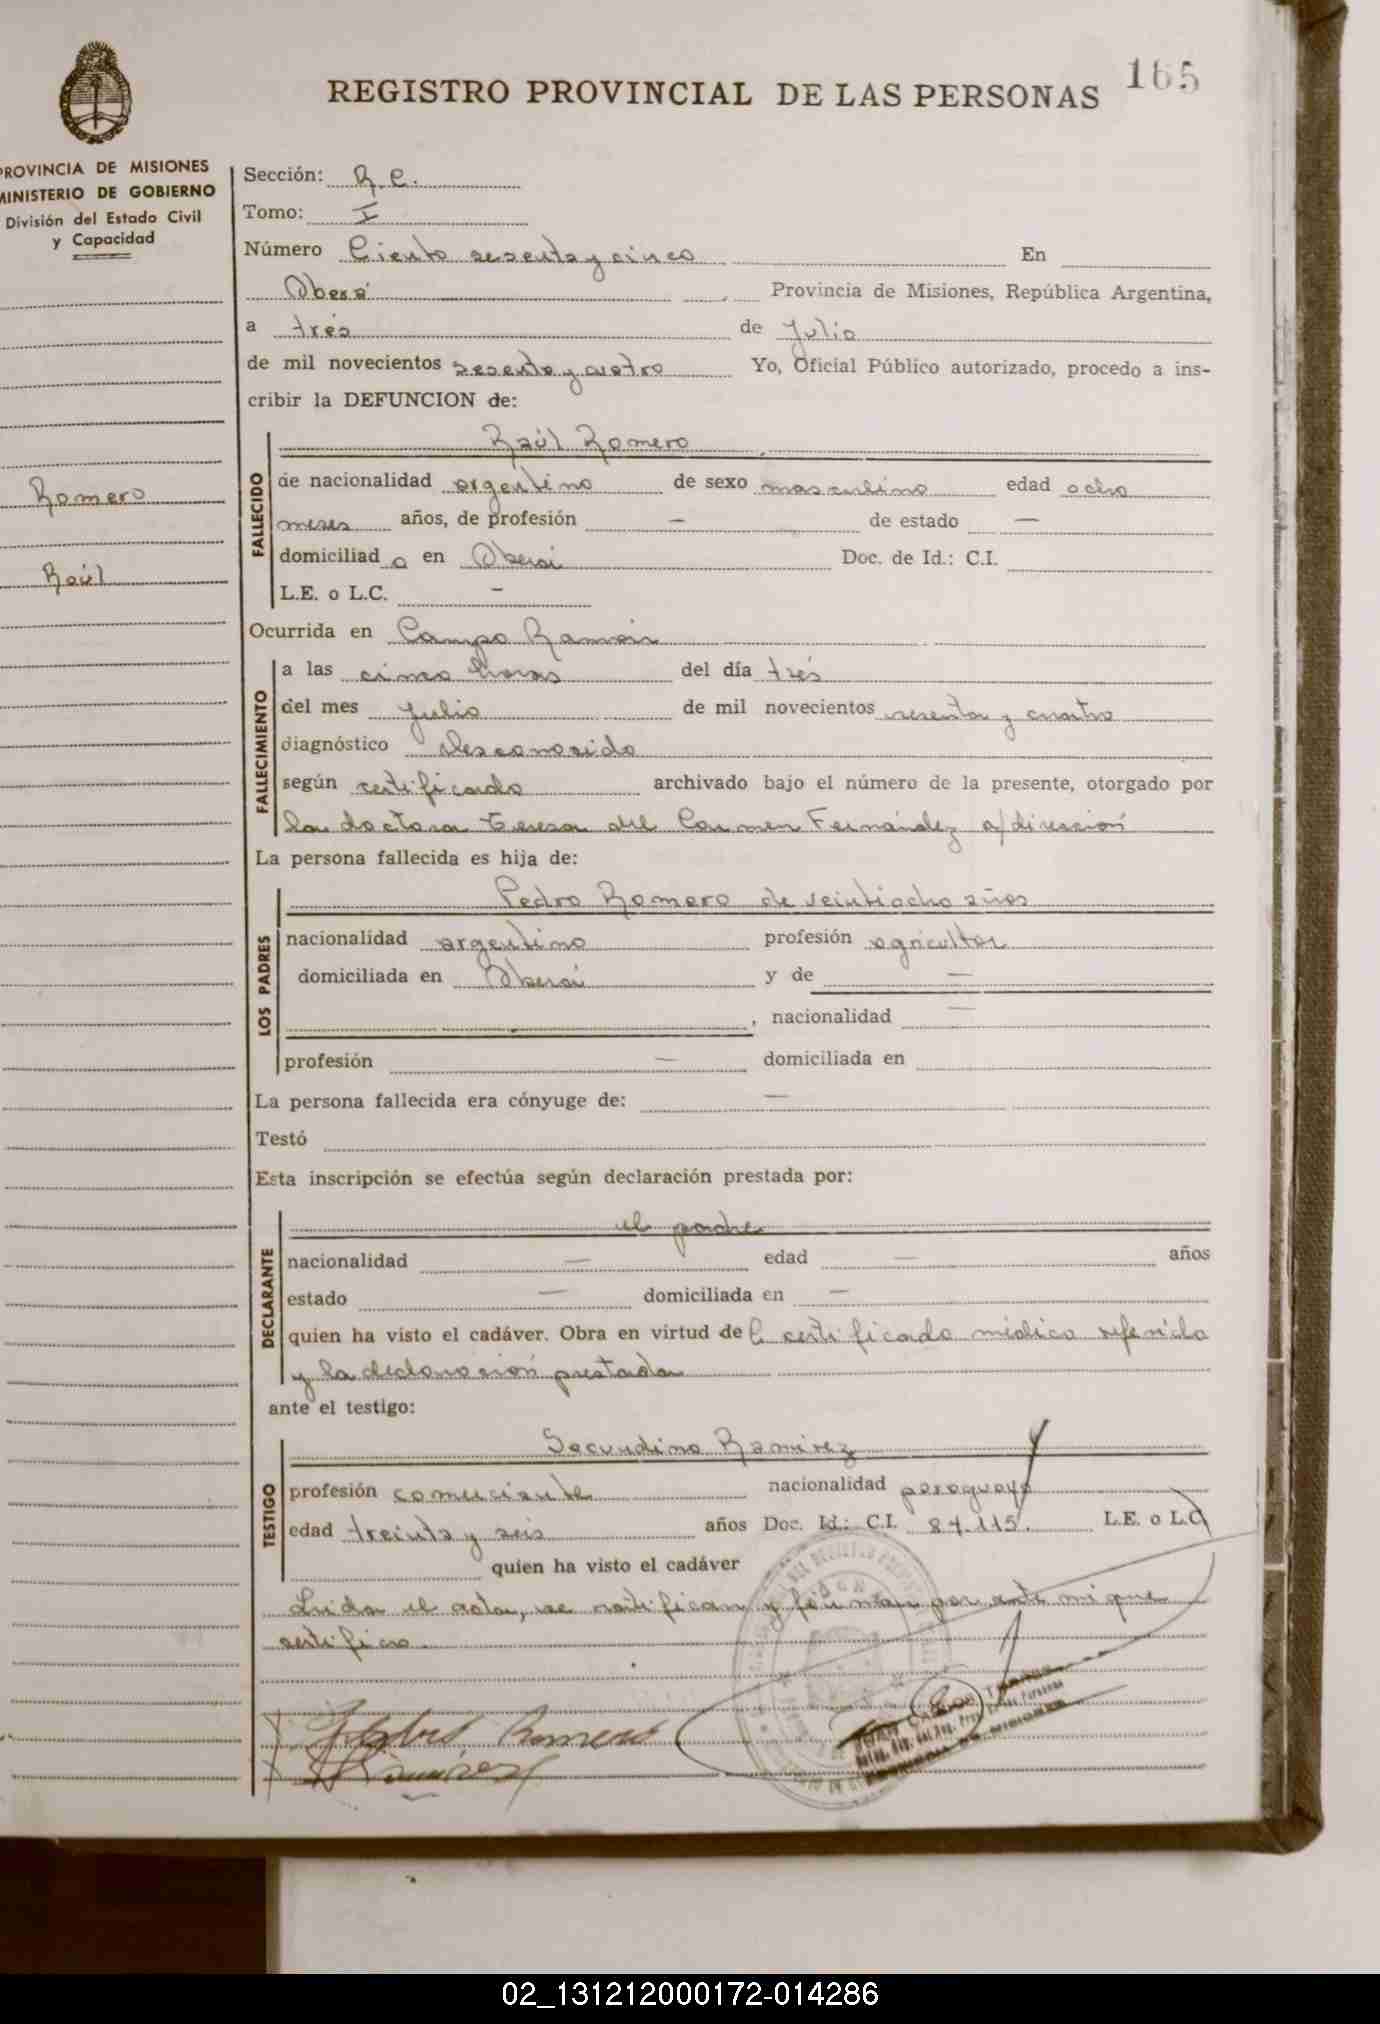 165
REGISTRO PROVINCIAL DE LAS PERSONAS
PROVINCIA DE MISIONES
MINISTERIO DE GOBIERNO
División del Estado Civil
y Capacidad
Romero
Raúl
Sección: R.C.
Tomo: I
Número Ciento sesenta y cinco En
Oberá Provincia de Misiones, República Argentina,
a tres de Julio
de mil novecientos sesenta y cuatro Yo, Oficial Público autorizado, procedo a ins-
cribir la DEFUNCION de:
FALLECIDO
Raúl Romero
de nacionalidad argentino de sexo masculino edad ocho
meses años, de profesión — de estado —
domiciliad o en Oberá Doc. de Id.: C.I.
L.E. o L.C. –
Ocurrida en Campo Ramón
FALLECIMIENTO
a las cinco horas del día tres
del mes Julio de mil novecientos sesenta y cuatro
diagnóstico desconocido
según certificado archivado bajo el número de la presente, otorgado por
la doctora Teresa del Carmen Fernández a/dirección
La persona fallecida es hija de:
LOS PADRES
Pedro Romero de veintiocho años
nacionalidad argentino profesión agricultor
domiciliada en Oberá y de —
, nacionalidad —
profesión — domiciliada en
La persona fallecida era cónyuge de: —
Testó
Esta inscripción se efectúa según declaración prestada por:
DECLARANTE
el padre
nacionalidad — edad — años
estado — domiciliada en —
quien ha visto el cadáver. Obra en virtud del certificado médico referido
y la declaración prestada
ante el testigo:
TESTIGO
Secundino Ramírez
profesión comerciante nacionalidad paraguayo
edad treinta y seis años Doc. Id.: C.I. 84.115. L.E. o L.C
quien ha visto el cadáver
Leida el acta, se ratifican y firman por ante mi que
certifico.
Romero
Ramírez
02_131212000172-014286